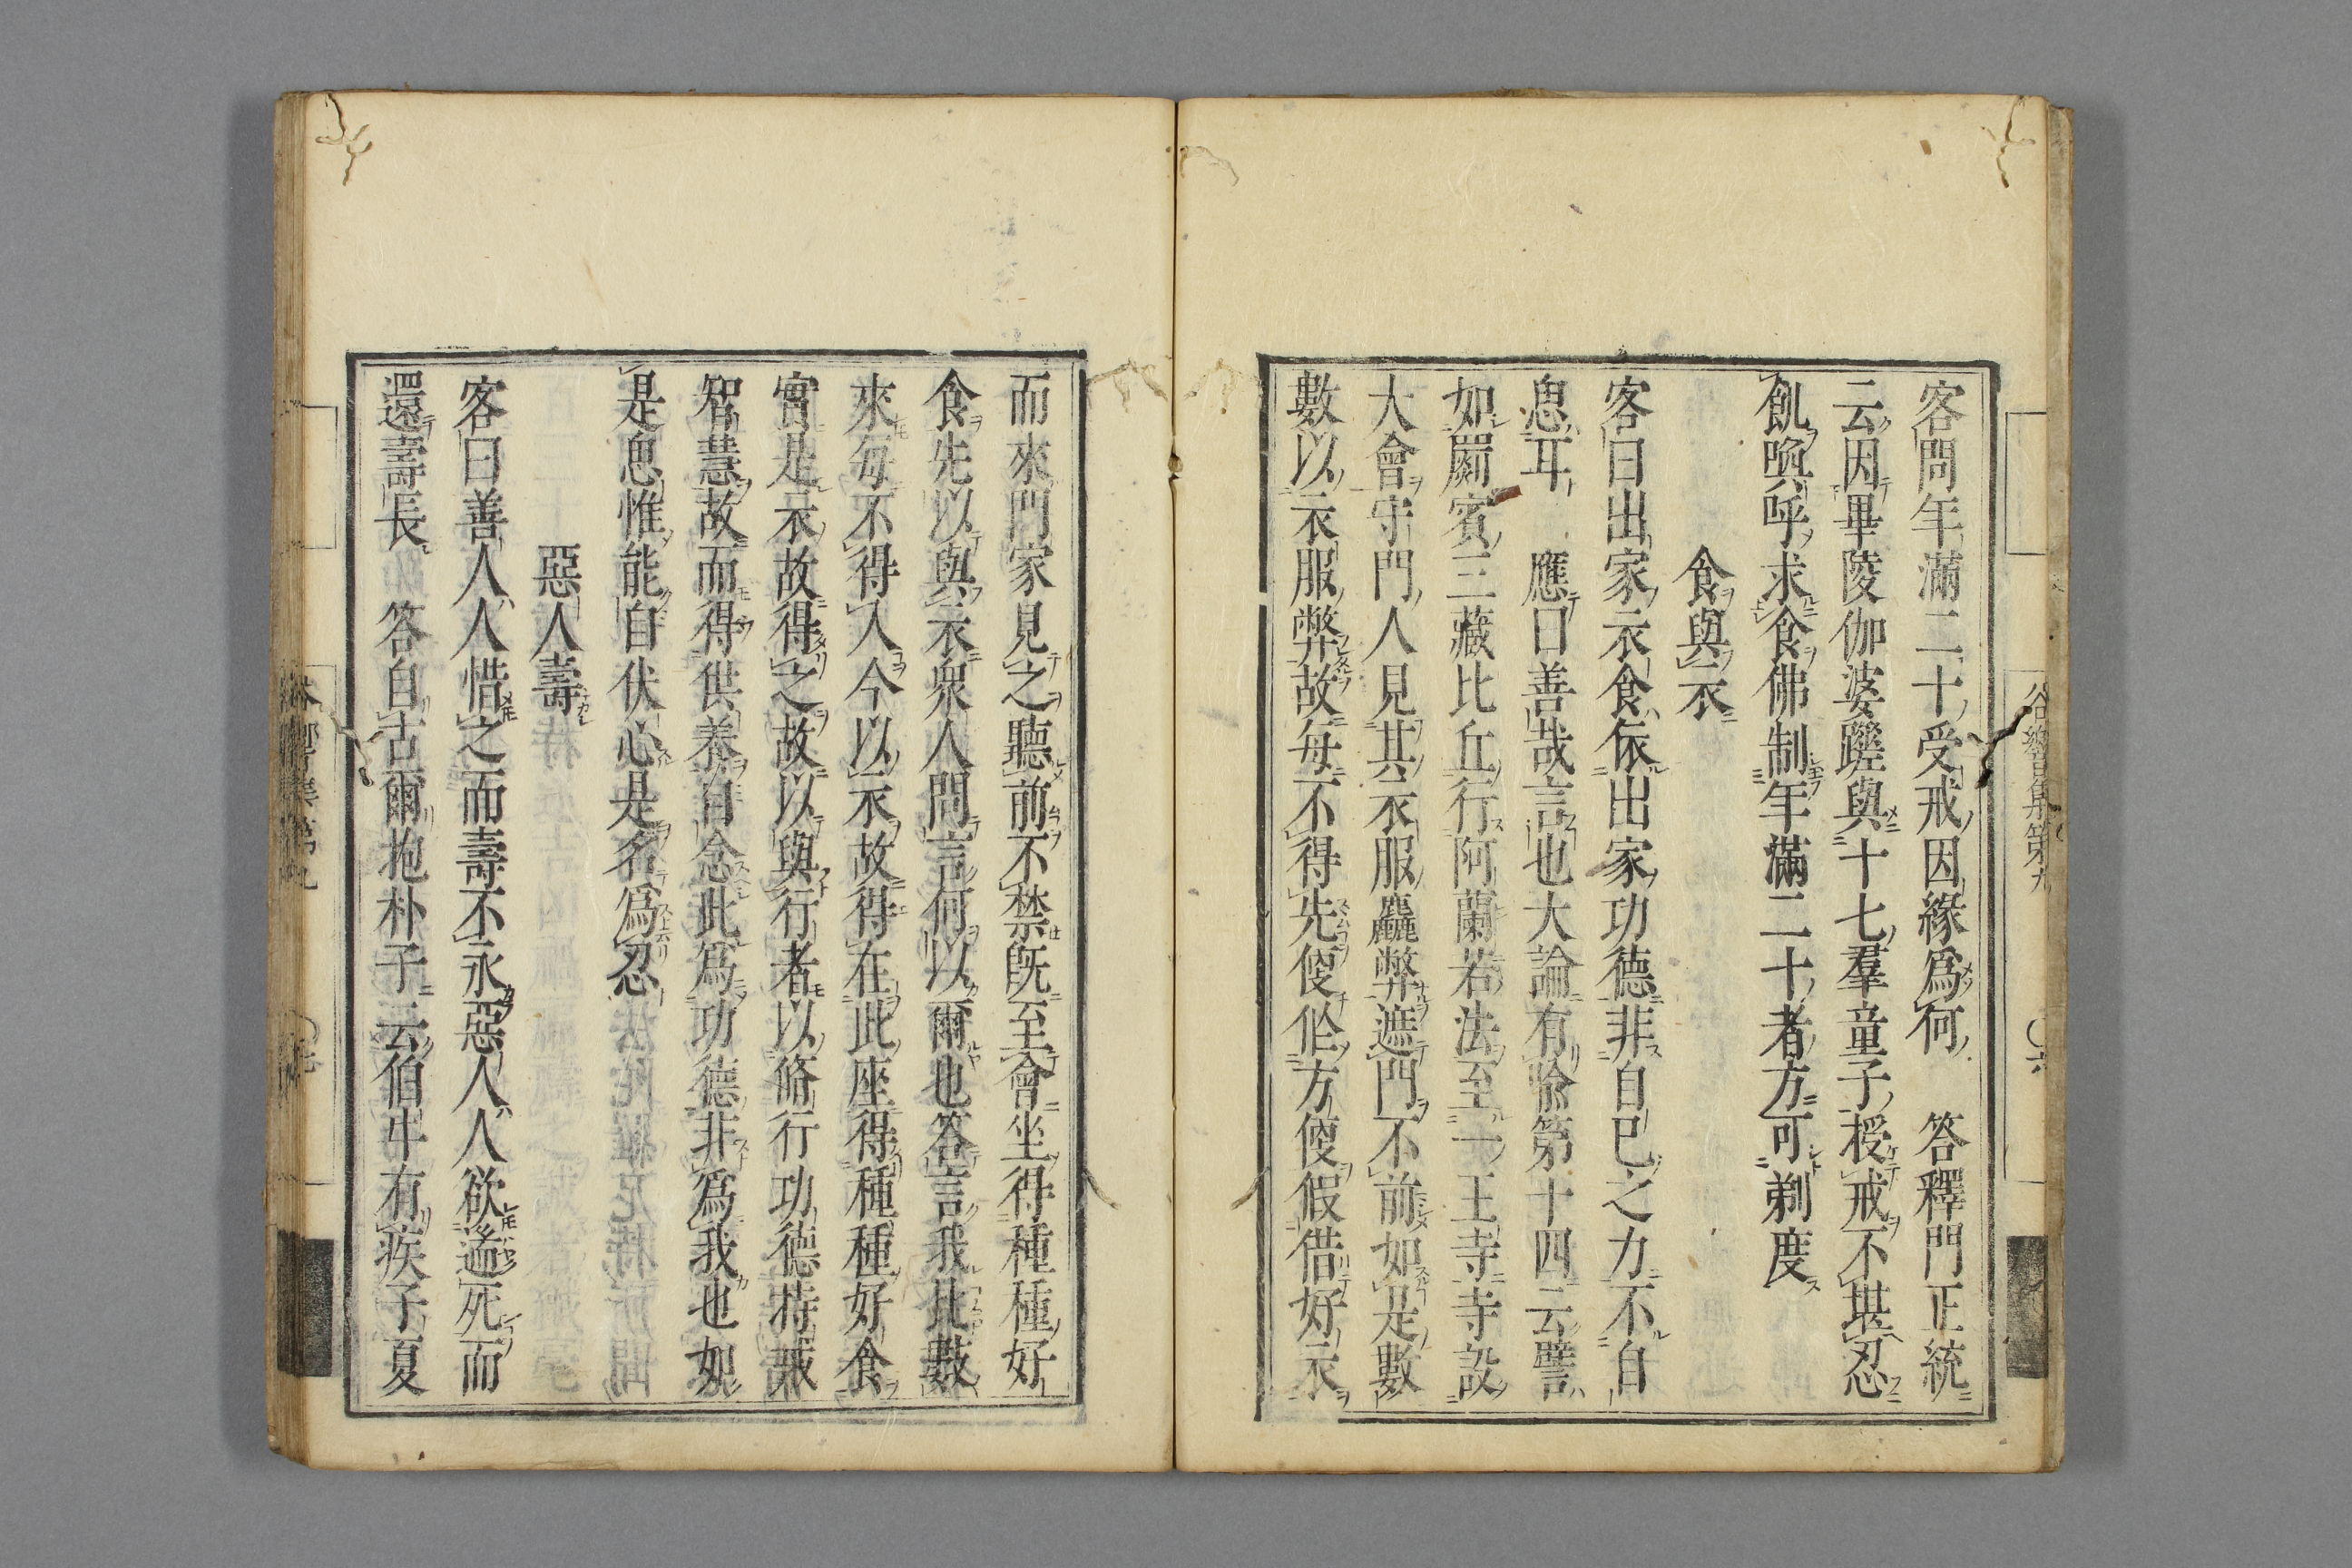 客問年滿二十受戒因緣爲何　答釋門正統
云因畢陵伽婆蹉與十七羣童子授戒不堪忍
飢喚呼求食佛制年滿二十者方可剃度
食與衣
客曰出家衣食依出家功德非自已之力不自
息耳　應曰善哉言也大論有喩第十四云譬
如罽賓三藏比丘行阿蘭若法至一王寺寺設
大會守門人見其衣服麤弊遮門不前如是數
數以衣服弊故每不得先便作方便假借好衣
而來門家見之聽前不禁旣至會坐得種種好
食先以與衣衆人問言何以爾也答言我比數
來每不得入今以衣故得在此座得種種好食
實是衣故得之故以與行者以脩行功德持戒
智慧故而得供養自念此爲功德非爲我也如
是思惟能自伏心是名爲忍
惡人壽
客曰善人人惜之而壽不永惡人人欲遄死而
還壽長　答自古爾抱朴子云伯牛有疾子夏
谷響集第九　〇六